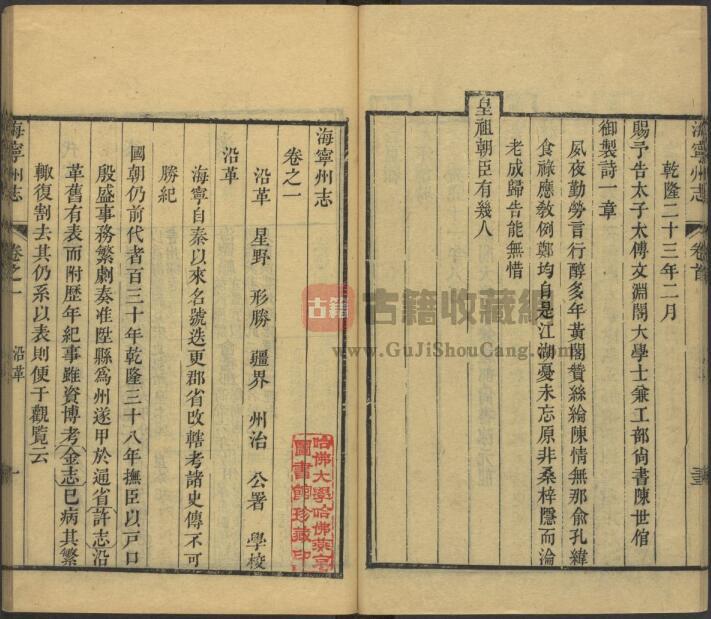 海寧州志 卷首 三
乾隆二十三年二月
賜予告太子太傅文淵閣大學士兼工部尚書陳世倌
御製詩一章
夙夜勤勞言行醇多年黃閣贊絲綸陳情無那俞孔緯
食祿應教例鄭均自是江湖憂未忘原非桑梓隱而淪
老成歸告能無惜
皇祖朝臣有幾人
海寧州志
卷之一
沿革 星野 形勝 疆界 州治 公署 學校
沿革
海寧自秦以來名號迭更郡省改轄考諸史傳不可
勝紀
國朝仍前代者百三十年乾隆三十八年撫臣以戸口
殷盛事務繁劇奏准陞縣爲州遂甲於通省許志沿
革舊有表而附歷年紀事雖資博考金志已病其繁
輙復割去其仍系以表則便于觀覽云
海寧州志 卷之一 沿革 一
哈佛大學哈佛燕京
圖書館珍藏印
古籍 古籍收藏網
www.GuJiShouCang.com